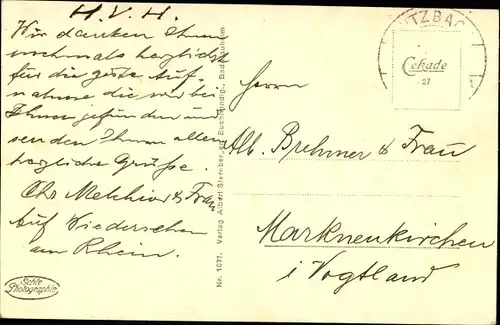 H. V. H.
Wir danken Ihnen
nochmals herzlichst
für die gute Auf-
nahme die wir bei
Ihnen gefunden und
senden Ihnen allen
herzliche Grüße.
Chr. Melchior & Frau
Auf Wiedersehen
am Rhein.
Echte
Photographie
Nr. 1077. Verlag Albert
UTZBAC
Cekade
27
Herrn
Alb. Brehmer & Frau
Markneukirchen
i Vogtland